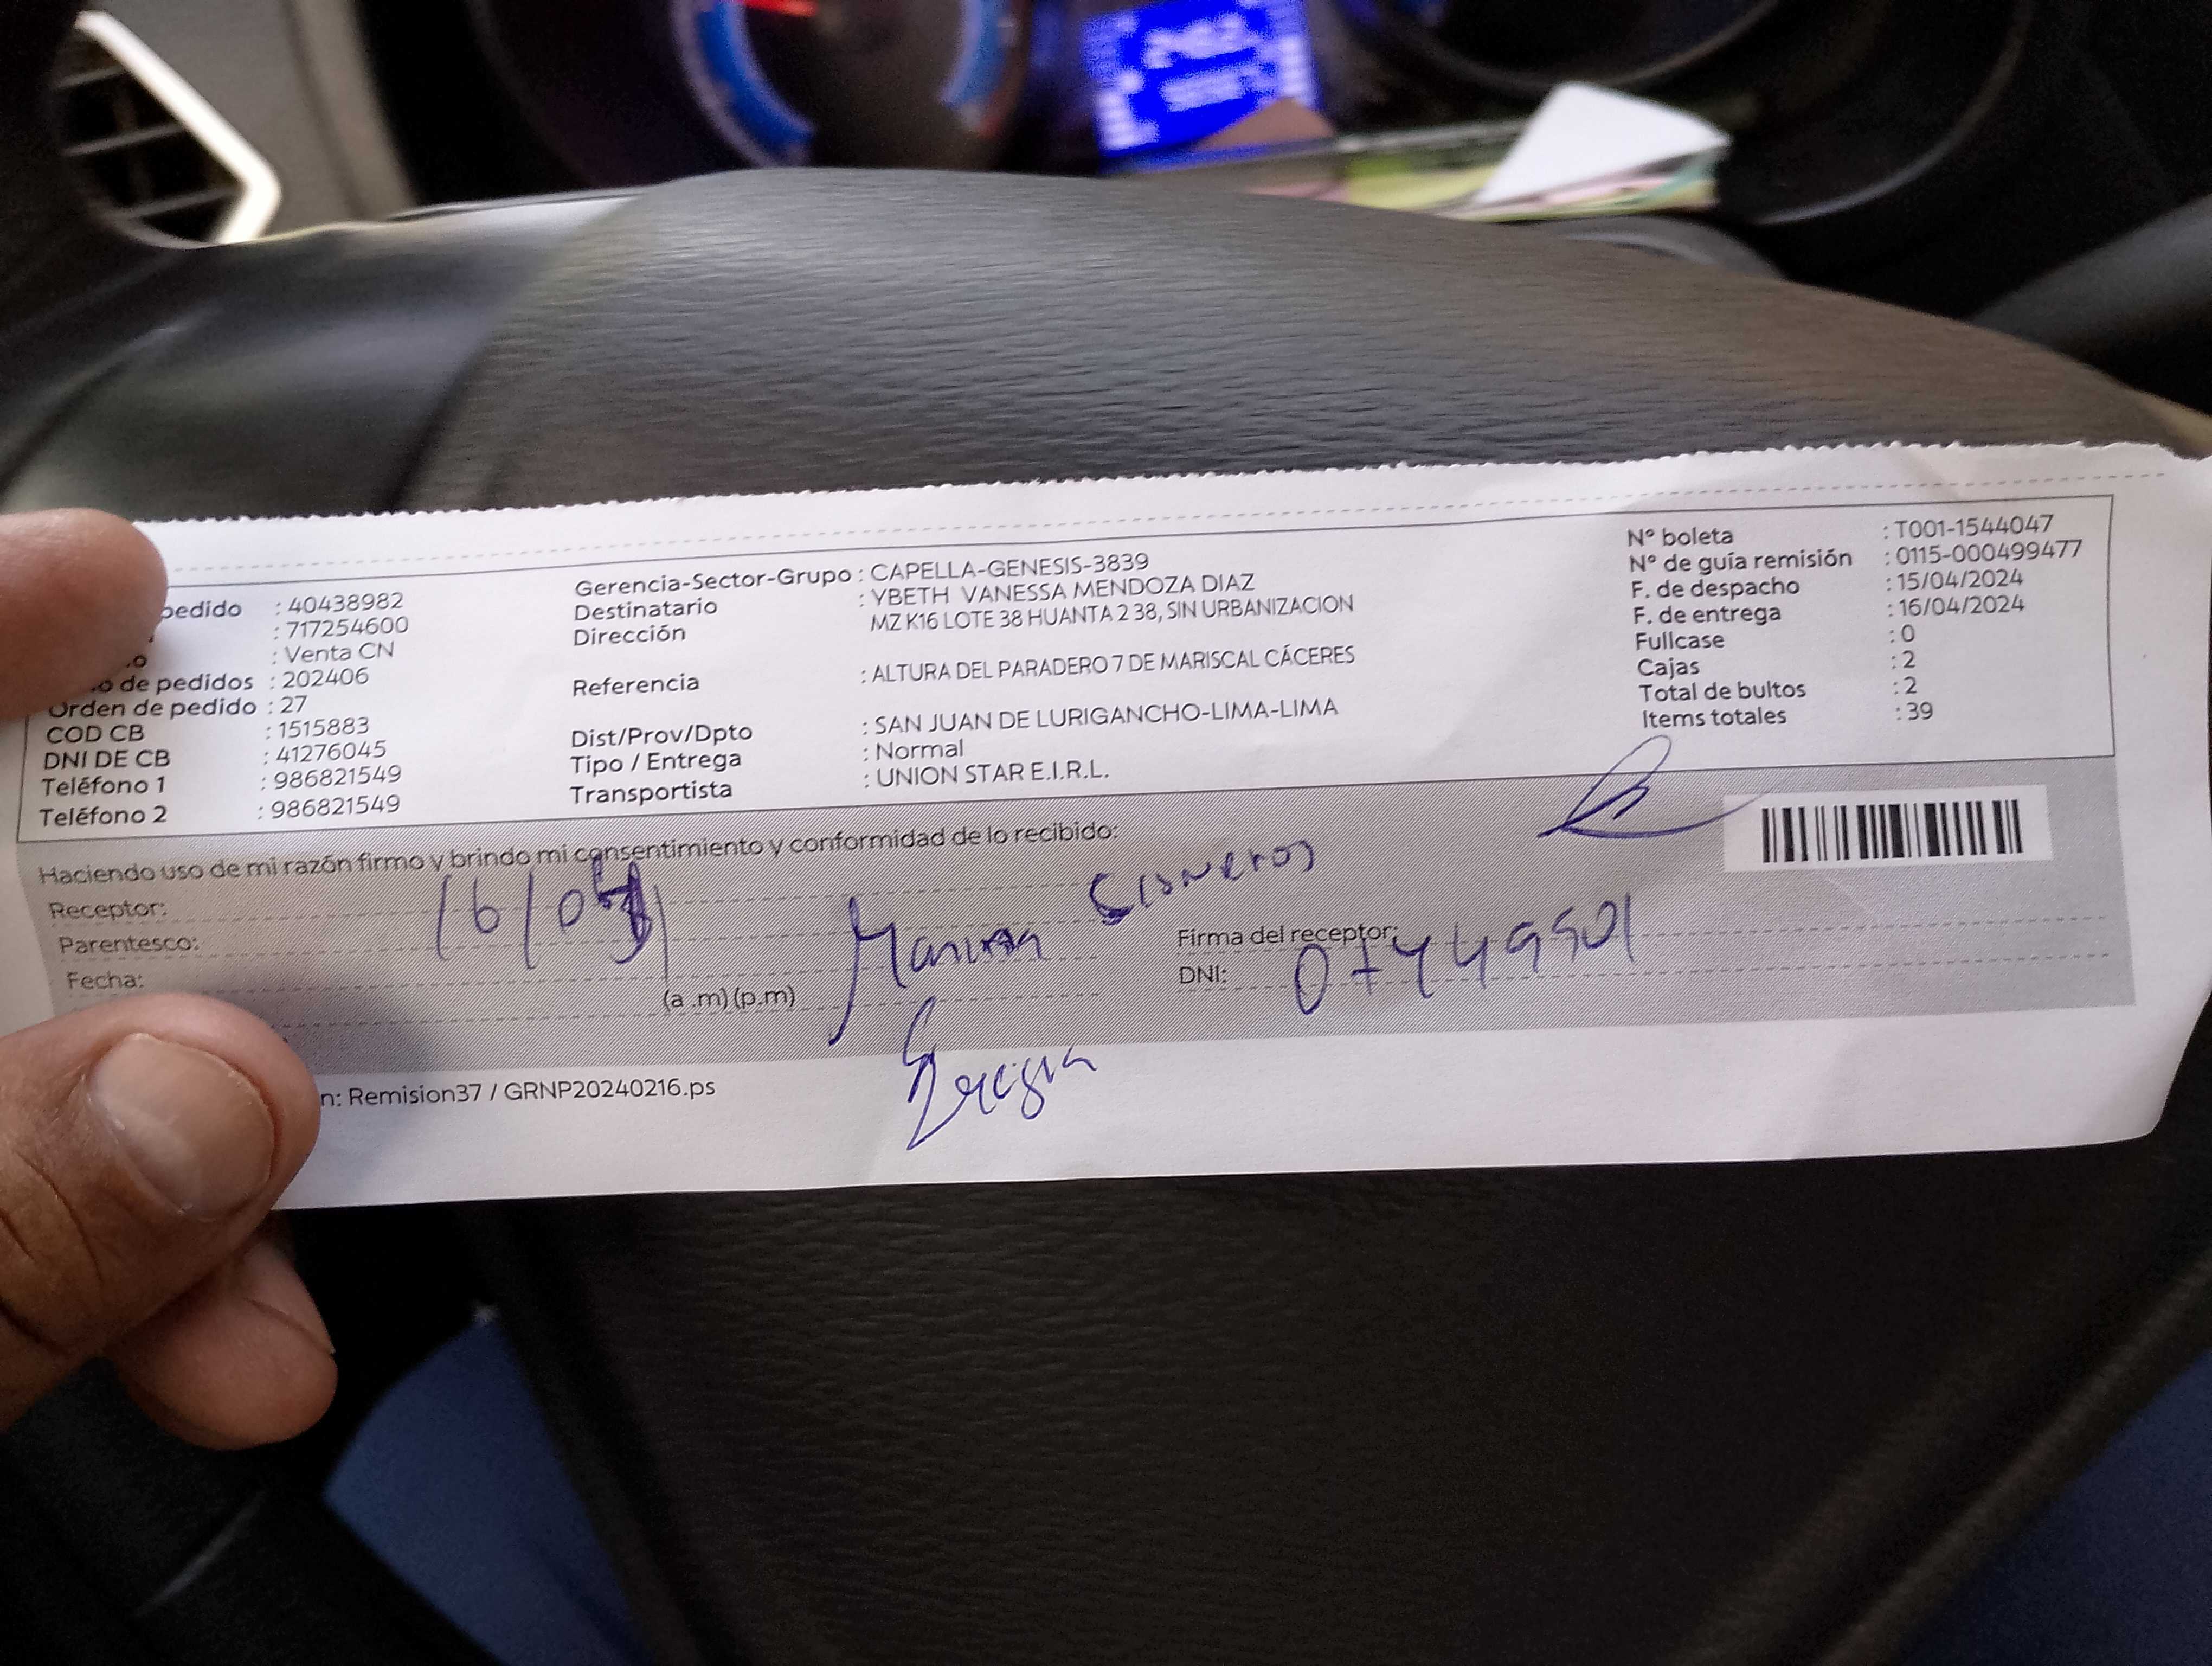 pedido : 40438982
: 717254600
: Venta CN
de pedidos : 202406
Orden de pedido : 27
COD CB : 1515883
DNI DE CB : 41276045
Teléfono 1 : 986821549
Teléfono 2 : 986821549
Gerencia-Sector-Grupo : CAPELLA-GENESIS-3839
Destinatario : YBETH VANESSA MENDOZA DIAZ
Dirección MZ K16 LOTE 38 HUANTA 2 38, SIN URBANIZACION
Referencia : ALTURA DEL PARADERO 7 DE MARISCAL CÁCERES
Dist/Prov/Dpto : SAN JUAN DE LURIGANCHO-LIMA-LIMA
Tipo / Entrega : Normal
Transportista : UNION STAR E.I.R.L.
N° boleta : T001-1544047
N° de guía remisión : 0115-000499477
F. de despacho : 15/04/2024
F. de entrega : 16/04/2024
Fullcase : 0
Cajas : 2
Total de bultos : 2
Items totales : 39
Haciendo uso de mi razón firmo y brindo mi consentimiento y conformidad de lo recibido:
Receptor:
Parentesco:
Fecha:
(a .m) (p.m)
Cisneros
Firma del receptor:
DNI: 07449501
n: Remision37 / GRNP20240216.ps